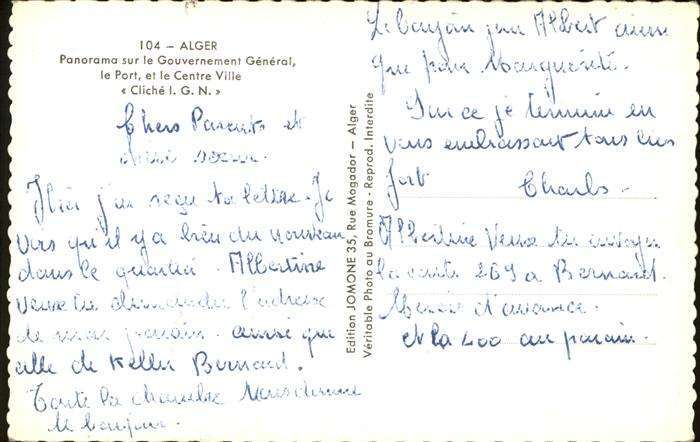 104 — ALGER
Panorama sur le Gouvernement Général,
le Port, et le Centre Ville
« Cliché I. G. N. »
Chers Parents et
Hier j'ai reçu ta lettre. Je
vois qu'il y a bien du nouveau
dans le quartié. Albertine
veux tu demander l'adresse
de mon parain. aussi que
celle de Keller Bernard.
Toute la chambre vous donne
le bonjour.
Edition JOMONE 35, Rue Mogador — Alger
Véritable Photo au Bromure - Reprod. Interdite
Le bonjour pour Albert ainsi
que pour Marguerite.
Sur ce je termine en
vous embrassant tous bien
fort
Charles.
Albertine Veux tu envoyer
la carte 209 a Bernard.
Merci d'avance.
et la 200 au parain.